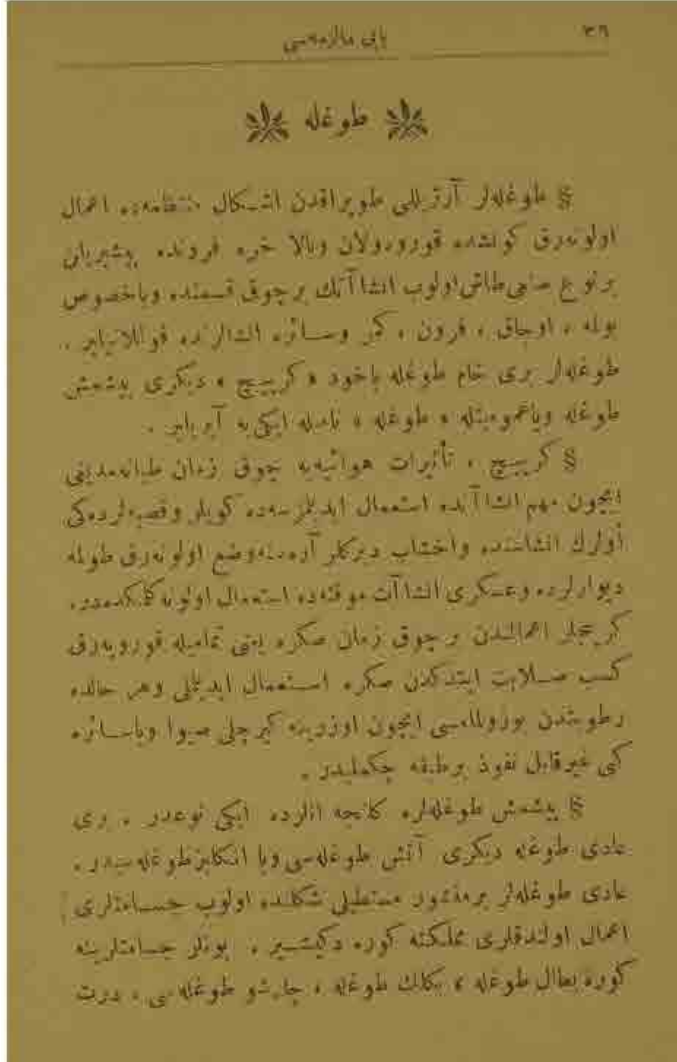 ٣٦
یاپی مالزمه‌سی
طوغله
§ طوغله‌لر آرژیللی طوپراقدن اشكال منتظمه‌ده اعمال
اولونه‌رق كونشده قورودولان ویا خره فرونده پیشیریلن
برنوع صناعی طاش اولوب انشاآتك برچوق قسمنده وباخصوص
بوله ، اوجاق ، فرون ، كمر وسائره انشالرنده قوللانیلیر .
طوغله‌لر بری خام طوغله یاخود « كرپیچ » دیكری پیشمش
طوغله ویا عمومیتله « طوغله » نامیله ایكی‌یه آیریلیر .
§ كرپیچ ، تأثیرات هوائیه‌یه چوق زمان طیانه‌مدیغی
ایچون مهم انشاآتده استعمال ایدیلمزسه‌ده كویلر وقصبه‌لرده‌كی
أولرك انشاسنده واخشاب دیركلر آره‌سنه وضع اولونه‌رق طولمه
دیوارلرده وعسكری انشاآت موقته‌ده استعمال اولونه كلمكده‌در.
كرپیچلر اعمالندن برچوق زمان صكره یعنی تمامیله قورویه‌رق
كسب صلابت ایتدكدن صكره استعمال ایدیلملی وهر حالده
رطوبتدن بوزولمامسی ایچون اوزرینه كیرچلی صیوا ویا سائره
كبی غیرقابل نفوذ برطبقه چكملیدر .
§ پیشمش طوغله‌لره كلنجه آنلرده ایكی نوعدر . بری
عادی طوغله دیكری آتش طوغله‌سی ویا انكلیز طوغله‌سیدر .
عادی طوغله‌لر برمنشور مستطیلی شكلنده اولوب جسامتلری
اعمال اولندقلری مملكته كوره دكیشیر . بونلر جسامتلرینه
كوره بطال طوغله ، بكلك طوغله ، چارشو طوغله‌سی ، درت